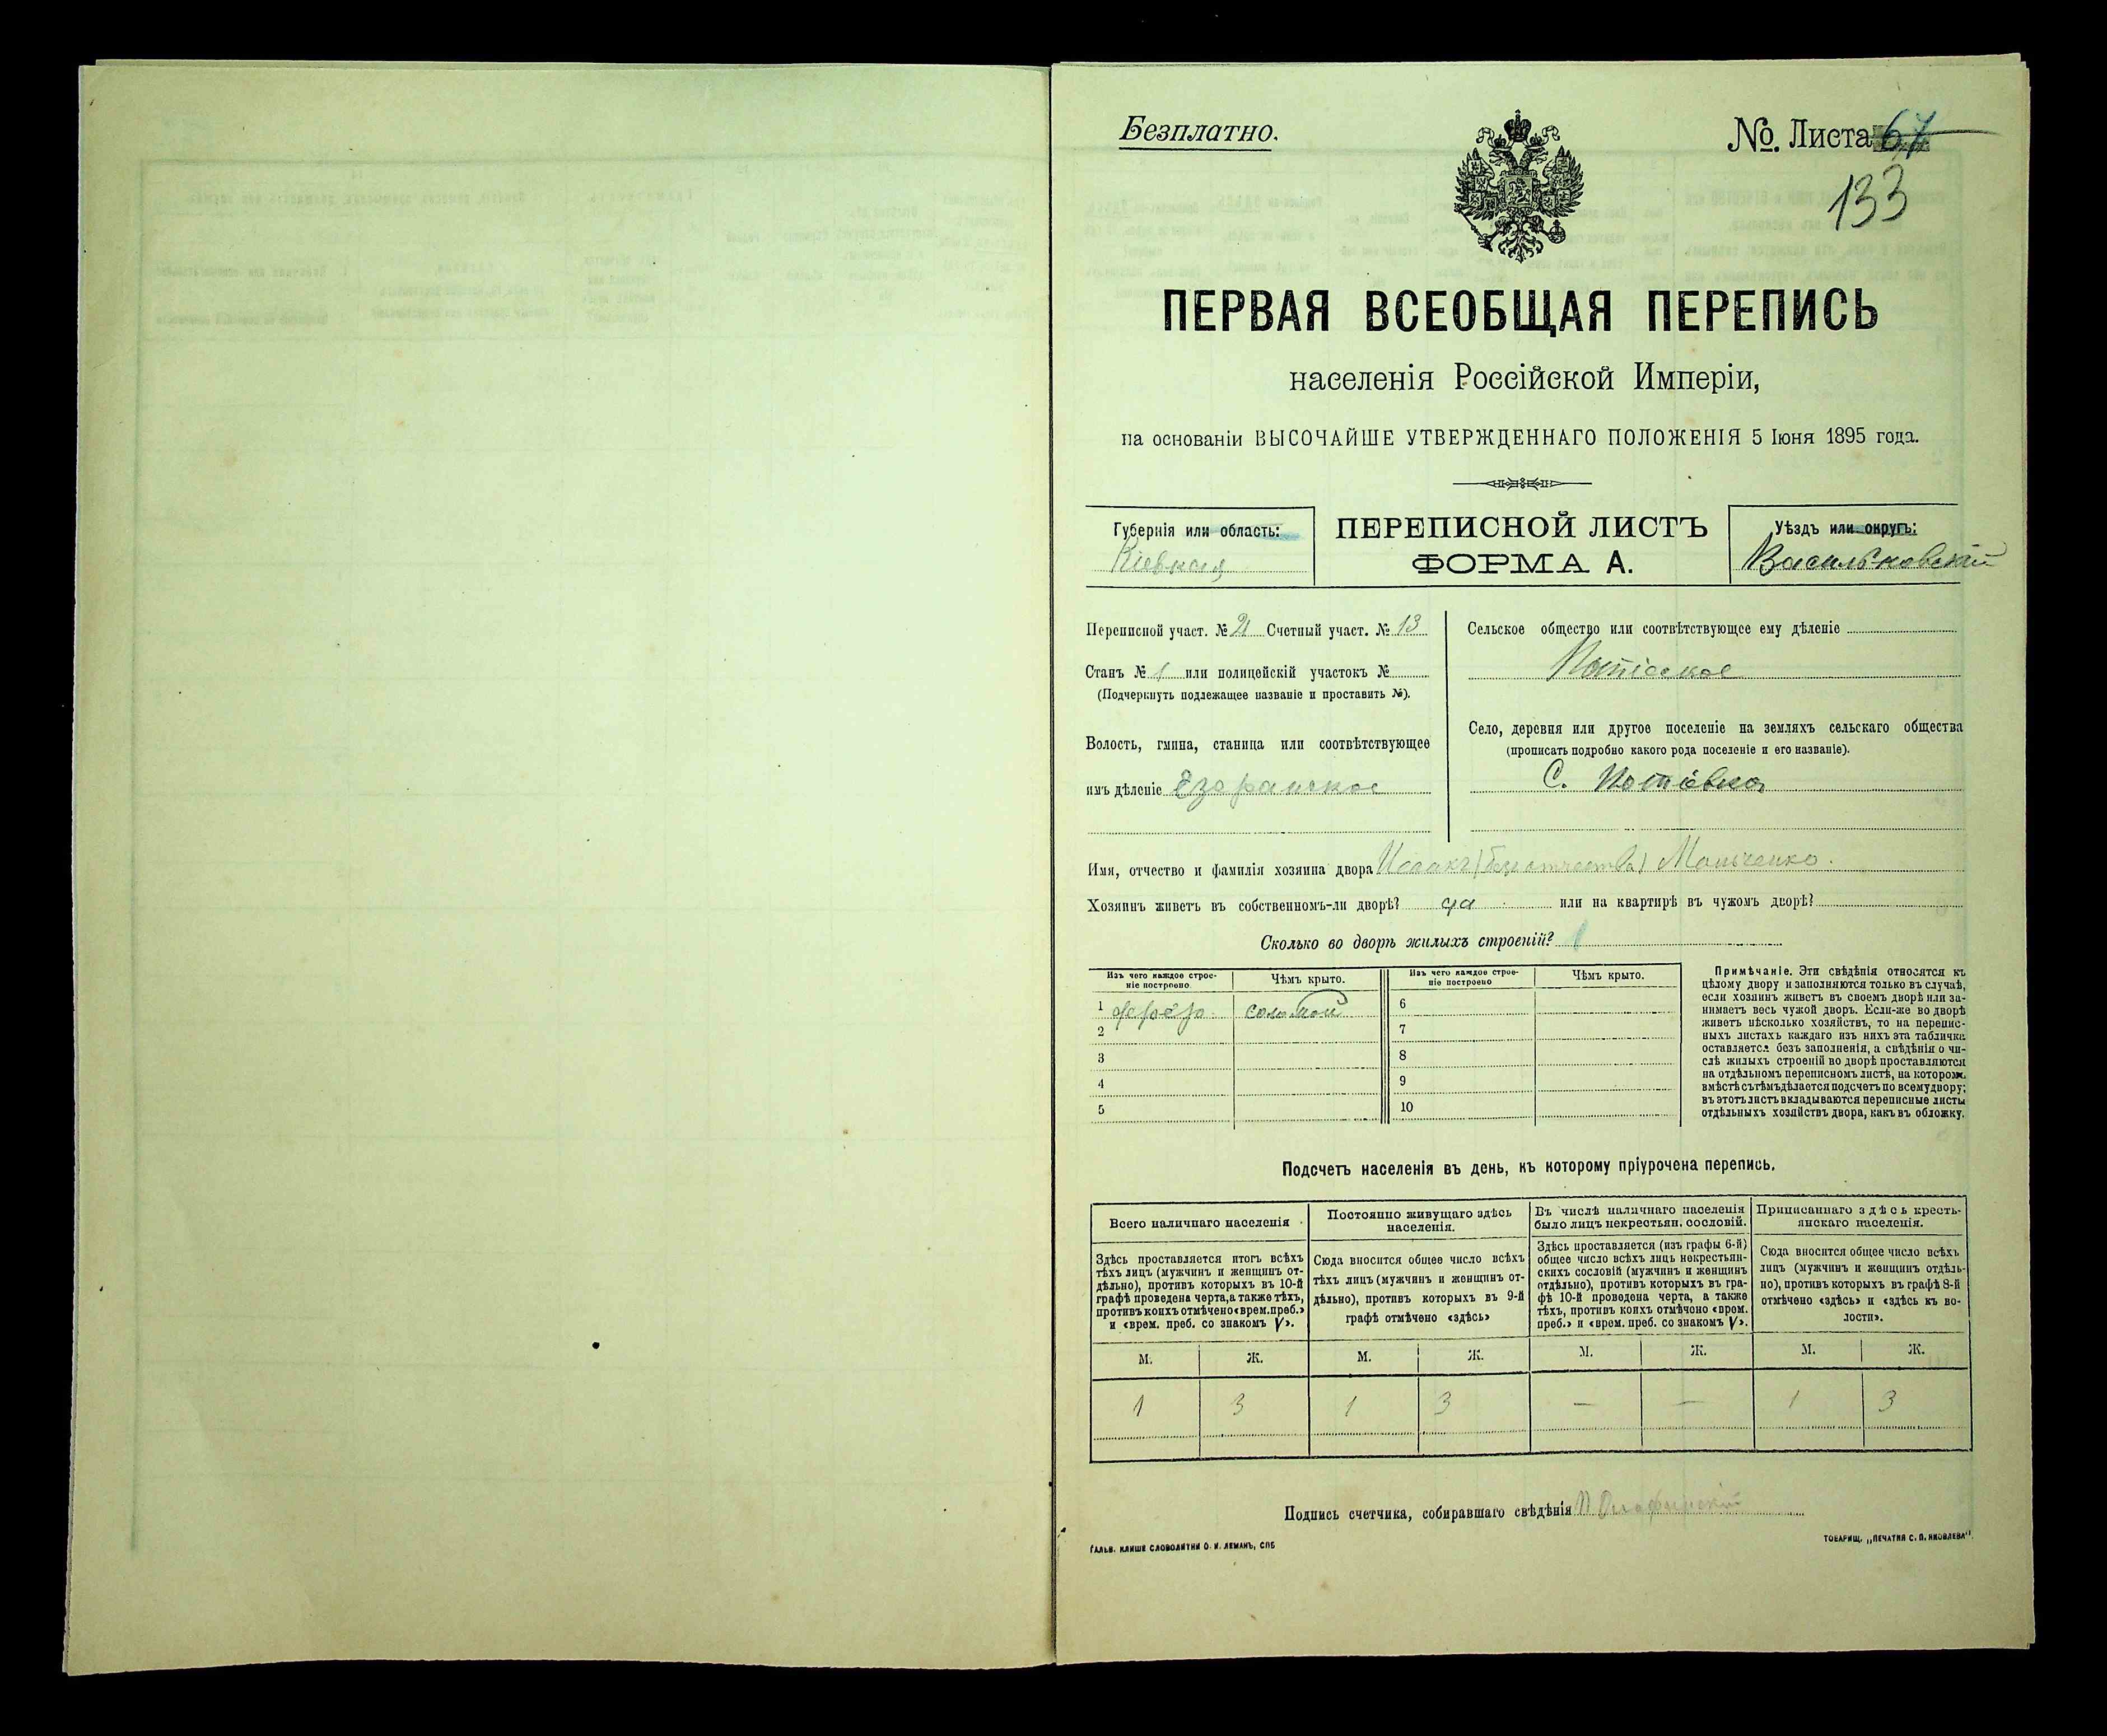 Безплатно.
№. Листа 67
133
ПЕРВАЯ ВСЕОБЩАЯ ПЕРЕПИСЬ
населенія Россійской Имперіи,
на основаніи ВЫСОЧАЙШЕ УТВЕРЖДЕННАГО ПОЛОЖЕНІЯ 5 Іюня 1895 года.
Губернія или область:
Кіевкая
ПЕРЕПИСНОЙ ЛИСТЪ
ФОРМА А.
Уѣздъ или округъ:
Васильковскій
Переписной участ. № 21 Счетный участ. № 13
Станъ № 1 или полицейскій участокъ №
(Подчеркнуть подлежащее названіе и проставить №).
Волость, гмина, станица или соотвѣтствующее
имъ дѣленіе Езерянское
Сельское общество или соотвѣтствующее ему дѣленіе
Село, деревня или другое поселеніе на земляхъ сельскаго общества
(прописать подробно какого рода поселеніе и его названіе).
С. Потіевка
Имя, отчество и фамилія хозяина двора Исаакъ (безъ отчества)
Хозяинъ живетъ въ собственномъ-ли дворѣ? да или на квартирѣ въ чужомъ дворѣ?
Сколько во дворѣ жилыхъ строеній? 1
Изъ чего каждое строе-
ніе построено
Чѣмъ крыто.
Изъ чего каждое строе-
ніе построено
Чѣмъ крыто.
1 соломой 6
2 7
3 8
4 9
5 10
Примѣчаніе. Эти свѣдѣнія относятся къ
цѣлому двору и заполняются только въ случаѣ,
если хозяинъ живетъ въ своемъ дворѣ или за-
нимаетъ весь чужой дворъ. Если-же во дворѣ
живетъ нѣсколько хозяйствъ, то на перепис-
ныхъ листахъ каждаго изъ нихъ эта табличка
оставляется безъ заполненія, а свѣдѣнія о чи-
слѣ жилыхъ строеній во дворѣ проставляются
на отдѣльномъ переписномъ листѣ, на которомъ
вмѣстѣ съ тѣмъ дѣлается подсчетъ по всему двору;
въ этотъ листъ вкладываются переписные листы
отдѣльныхъ хозяйствъ двора, какъ въ обложку.
Подсчетъ населенія въ день, къ которому пріурочена перепись.
Всего наличнаго населенія
Здѣсь проставляется итогъ всѣхъ
тѣхъ лицъ (мужчинъ и женщинъ от-
дѣльно), противъ которыхъ въ 10-й
графѣ проведена черта, а также тѣхъ,
противъ коихъ отмѣчено «врем. преб.»
и «врем. преб. со знакомъ V».
Постоянно живущаго здѣсь
населенія.
Сюда вносится общее число всѣхъ
тѣхъ лицъ (мужчинъ и женщинъ от-
дѣльно), противъ которыхъ въ 9-й
графѣ отмѣчено «здѣсь»
Въ числѣ наличнаго населенія
было лицъ некрестьян. сословій.
Здѣсь проставляется (изъ графы 6-й)
общее число всѣхъ лицъ некрестьян-
скихъ сословій (мужчинъ и женщинъ
отдѣльно), противъ которыхъ въ гра-
фѣ 10-й проведена черта, а также
тѣхъ, противъ коихъ отмѣчено «врем.
преб.» и «врем. преб. со знакомъ V».
Приписаннаго здѣсь кресть-
янскаго населенія.
Сюда вносится общее число всѣхъ
лицъ (мужчинъ и женщинъ отдѣль-
но), противъ которыхъ въ графѣ 8-й
отмѣчено «здѣсь» и «здѣсь къ во-
лости».
М. Ж. М. Ж. М. Ж. М. Ж.
1 3 1 3 — — 1 3
Подпись счетчика, собиравшаго свѣдѣнія
ГАЛЬВ. КЛИШЕ СЛОВОЛИТНИ О. И. ЛЕМАНЪ, СПБ
ТОВАРИЩ. „ПЕЧАТНЯ С. П. ЯКОВЛЕВА"